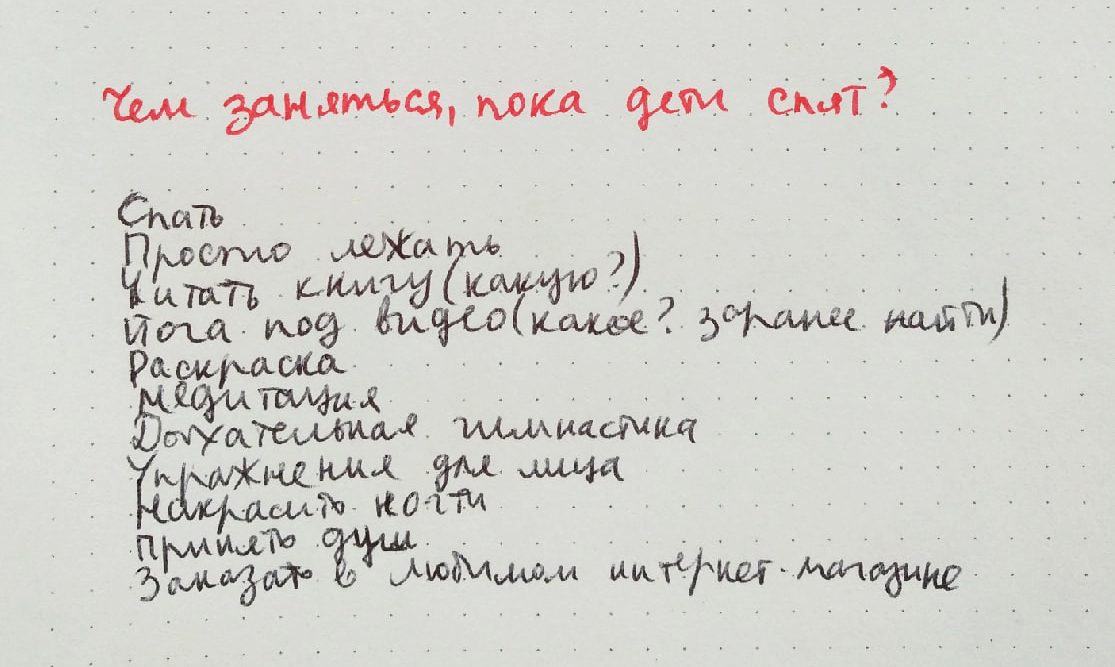 Чем заняться, пока дети спят?
Спать
Просто лежать
Читать книгу (какую?)
Йога под видео (какое? заранее найти)
Раскраска
Медитация
Дыхательная гимнастика
Упражнения для лица
Накрасить ногти
Принять душ
Заказать в любимом интернет-магазине